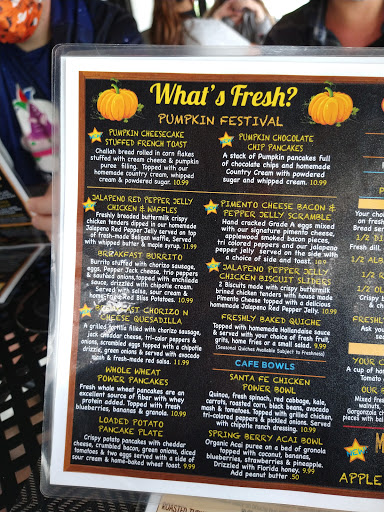 What's Fresh?
PUMPKIN FESTIVAL
PUMPKIN CHEESECAKE
STUFFED FRENCH TOAST
Challah bread rolled in corn flakes
stuffed with cream cheese & pumpkin
puree filling. Topped with our
homemade country cream, whipped
cream & powdered sugar. 10.99
PUMPKIN CHOCOLATE
CHIP PANCAKES
A stack of Pumpkin pancakes full
of chocolate chips and homemade
Country Cream with powdered
sugar and whipped cream. 10.99
JALAPENO RED PEPPER JELLY
CHICKEN & WAFFLES
Freshly breaded buttermilk crispy
chicken tenders dipped in our homemade
Jalapeno Red Pepper Jelly served on top
of fresh-made Belgen waffle, served
with whipped butter & maple syrup. 11.99
BREAKFAST BURRITO
Burrito stuffed with chorizo sausage,
eggs, Pepper Jack cheese, trio peppers
& sauteed onions, topped with enchilada
sauce, drizzled with chipotle cream.
Served with salsa, sour cream &
home-fried Red Bliss Potatoes. 10.99
CHORIZO N
CHEESE QUESADILLA
A grilled tortilla filled with chorizo sausage,
jack cheddar cheese, tri-color peppers &
onions, scrambled eggs topped with a chipotle
drizzle, green onions & served with avocado
mash & fresh-made red salsa. 11.99
WHOLE WHEAT
POWER PANCAKES
Fresh whole wheat pancakes are an
excellent source of fiber with whey
protein added. Topped with fresh
blueberries, bananas & granola. 10.99
LOADED POTATO
PANCAKE PLATE
Crispy potato pancakes with cheddar
cheese, crumbled bacon, green onions, diced
tomatoes & two eggs served with a side of
sour cream & home-baked wheat toast. 9.99
PIMENTO CHEESE BACON &
PEPPER JELLY SCRAMBLE
Hand cracked Grade A eggs mixed
with our signature pimento cheese,
applewood smoked bacon pieces,
tri colored peppers and our jalapeno
pepper jelly served on the side with
a choice of side and toast. 10.99
JALAPENO PEPPER JELLY
CHICKEN BISCUIT SLIDERS
2 Biscuits made with crispy buttermilk
brined chicken tenders with house made
Pimento Cheese topped with a delicious
homemade Jalapeno Red Pepper Jelly. 10.99
FRESHLY BAKED QUICHE
Topped with homemade Hollandaise sauce
& served with your choice of fresh fruit,
grits, home fries or a small salad. 9.99
(Seasonal Quiches Available Subject to Freshness)
CAFE BOWLS
SANTA FE CHICKEN
POWER BOWL
Quinoa, fresh spinach, red cabbage, kale,
carrots, roasted corn, black beans, avocado
mash & tomatoes. Topped with grilled chicken,
tri-colored peppers & pickled onions. Served
with chipotle ranch dressing. 10.99
SPRING BERRY ACAI BOWL
Organic Acai puree on a bed of granola
topped with coconut, bananas,
blueberries, strawberries & pineapple.
Drizzled with Florida honey. 9.99
Add peanut butter .50
Your
on fresh
Bread ser
1/2
Fresh all
1/2
1/2
FRESHLY
Ask you
OUR
A cup of
Tomat
OUR
Mixed fresh
walnuts,
Gorgonzola
with balsam
NEW
APPLE